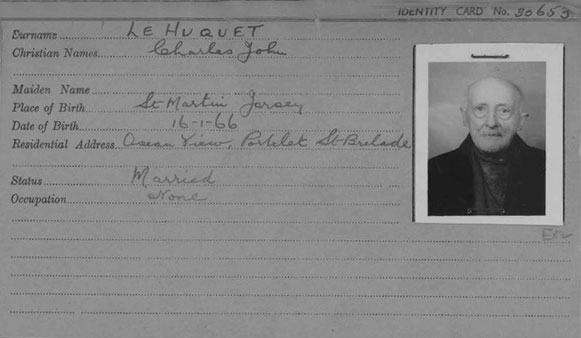 IDENTITY CARD No. 30653
Surname LE HUQUET
Christian Names Charles John
Maiden Name
Place of Birth St Martin Jersey
Date of Birth 16-1-66
Residential Address Ocean View, Portelet St Brelade
Status Married
Occupation None